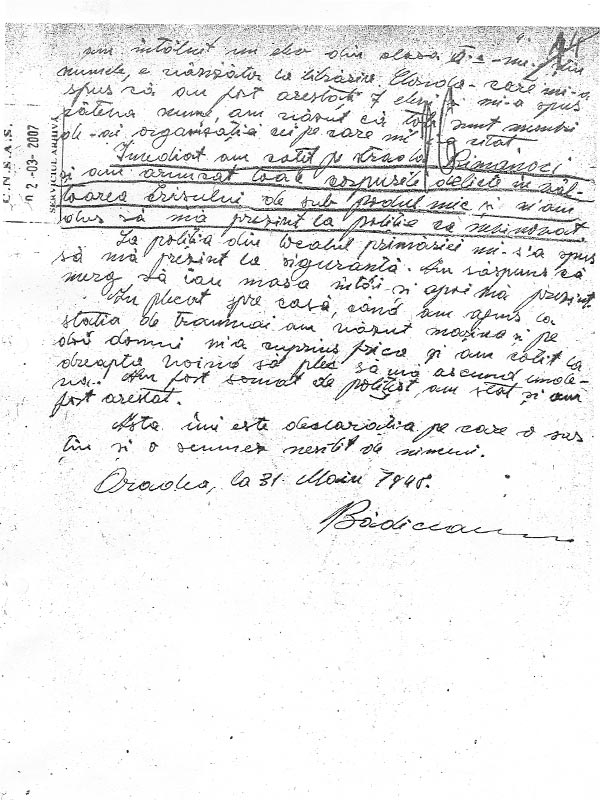 am întâlnit un elev din clasa
numele, e vânzător la librăria care mi-a
spus că am fost arestați 7 elevi și mi-a spus
câteva nume, am văzut că toți sunt membri
de-ai organizației pe care mi i-a citat
Imediat am cotit pe strada Rimanoci
și am aruncat toate corpurile delicte în vâl-
toarea Crisului de sub podul mic și m'am
dus să mă prezint la poliție ca
La poliția din localul primăriei mi-s'a spus
să mă prezint la siguranță. Am răspuns că
merg să iau masa întâi și apoi mă prezint.
Am plecat spre casă, când am ajuns la
stația de tramvai am văzut mașina și pe
doi domni m'a cuprins frica și am cotit la
dreapta voind să plec să mă ascund unde-
va. Am fost somat de polițist, am stat și am
fost arestat.
Asta îmi este declarația pe care o sus
țin și o semnez nesilit de nimeni.
Oradea, la 31 Maiu 1948.
C.N.S.A.S.
02-03-2007
SERVICIUL ARHIVĂ